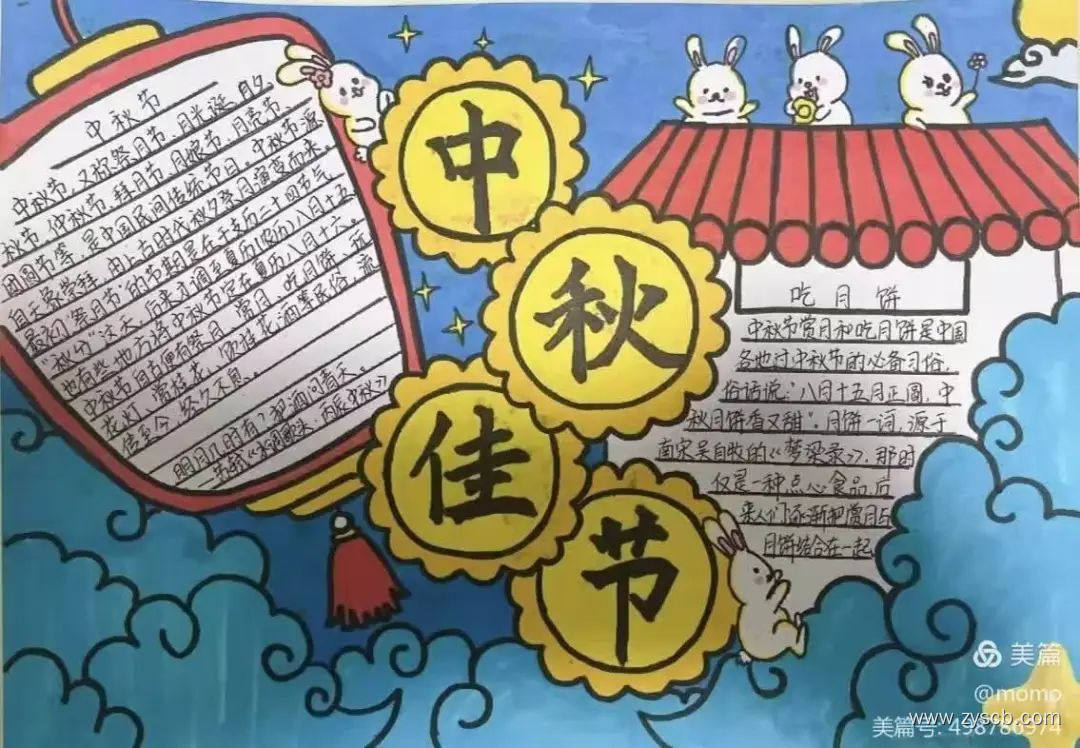 中秋节
中秋节，又称祭月节、月光诞、月夕、
秋节、仲秋节、拜月节、月娘节、月亮节、
团圆节等，是中国民间传统节日。中秋节源
自天象崇拜，由上古时代秋夕祭月演变而来。
最初“祭月节”的节期是在干支历二十四节气
“秋分”这天，后来才调至夏历(农历)八月十五，
也有些地方将中秋节定在夏历八月十六。
中秋节自古便有祭月、赏月、吃月饼、玩
花灯、赏桂花、饮桂花酒等民俗，流
传至今，经久不息。
明月几时有？把酒问青天。
中
秋
佳
节
吃月饼
中秋节赏月和吃月饼是中国
各地过中秋节的必备习俗，
俗话说：八月十五月正圆，中
秋月饼香又甜”。月饼一词，源于
南宋吴自牧的《梦梁录》，那时
仅是一种点心食品，后
来人们逐渐把赏月与
月饼结合在一起
美篇
@momo
美篇号: 498786974
www.zyscb.com